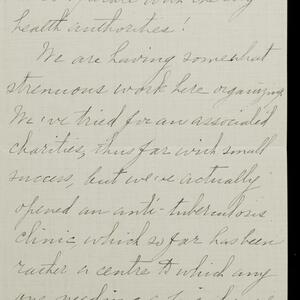 with the
health authorities!
We are having somewhat
strenuous work here organizing.
We've tried for an associated
charities, thus far with small
success, but we've actually
opened an anti-tuberculosis
clinic, which so far has been
rather a centre to which any
one needing